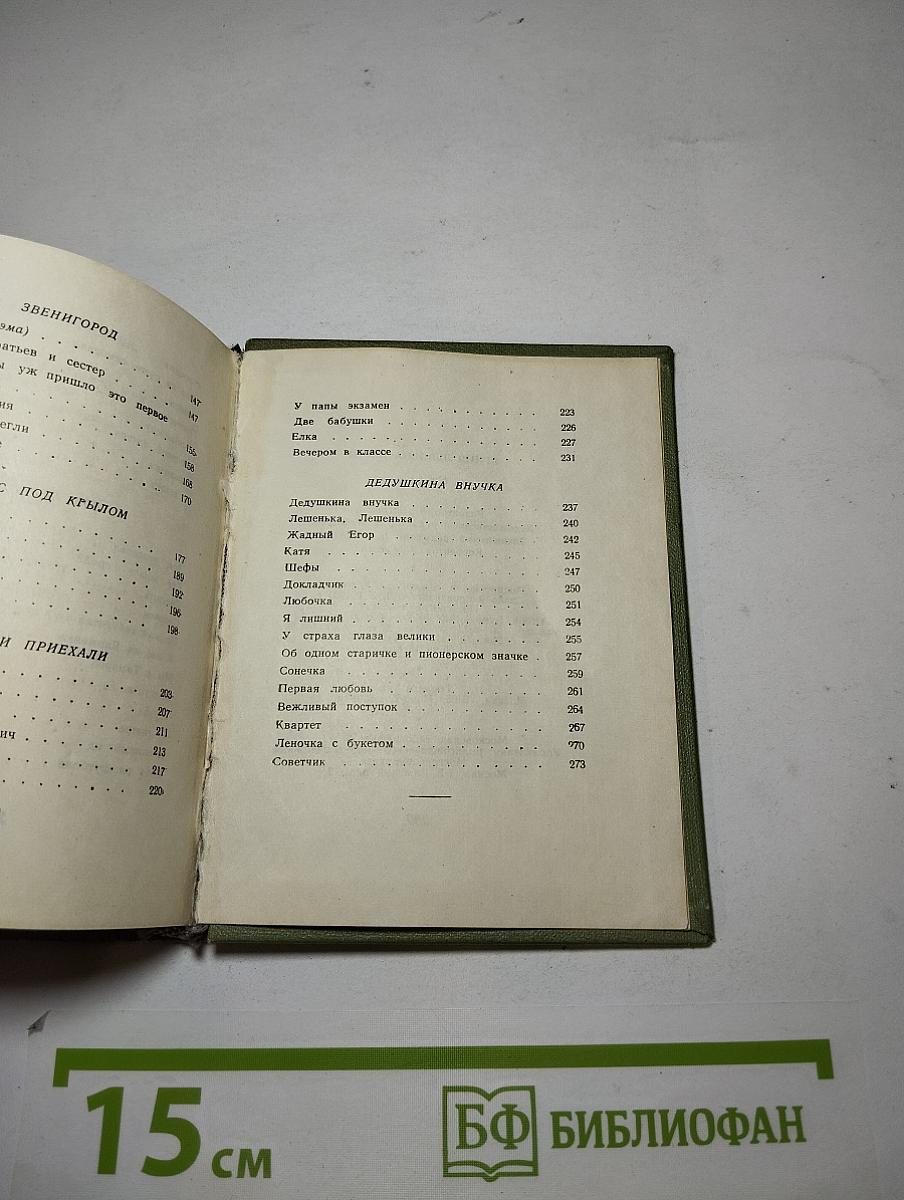 ЗВЕНИГОРОД
эма) . . . . . . . 147
атьев и сестер . . . . . 147
ы уж пришло это первое
. . . . . . . 155
ия . . . . . . . 158
егли . . . . . . . 168
. . . . . . . 170
С ПОД КРЫЛОМ
. . . . . . . 177
. . . . . . . 189
. . . . . . . 192
. . . . . . . 196
. . . . . . . 198
И ПРИЕХАЛИ
. . . . . . . 203
. . . . . . . 207
. . . . . . . 211
ич . . . . . . . 213
. . . . . . . 217
. . . . . . . 220
У папы экзамен . . . . . . . 223
Две бабушки . . . . . . . 226
Елка . . . . . . . 227
Вечером в классе . . . . . . . 231
ДЕДУШКИНА ВНУЧКА
Дедушкина внучка . . . . . . . 237
Лешенька, Лешенька . . . . . . . 240
Жадный Егор . . . . . . . 242
Катя . . . . . . . 245
Шефы . . . . . . . 247
Докладчик . . . . . . . 250
Любочка . . . . . . . 251
Я лишний . . . . . . . 254
У страха глаза велики . . . . . . . 255
Об одном старичке и пионерском значке . 257
Сонечка . . . . . . . 259
Первая любовь . . . . . . . 261
Вежливый поступок . . . . . . . 264
Квартет . . . . . . . 267
Леночка с букетом . . . . . . . 270
Советчик . . . . . . . 273
15 см
БФ БИБЛИОФАН